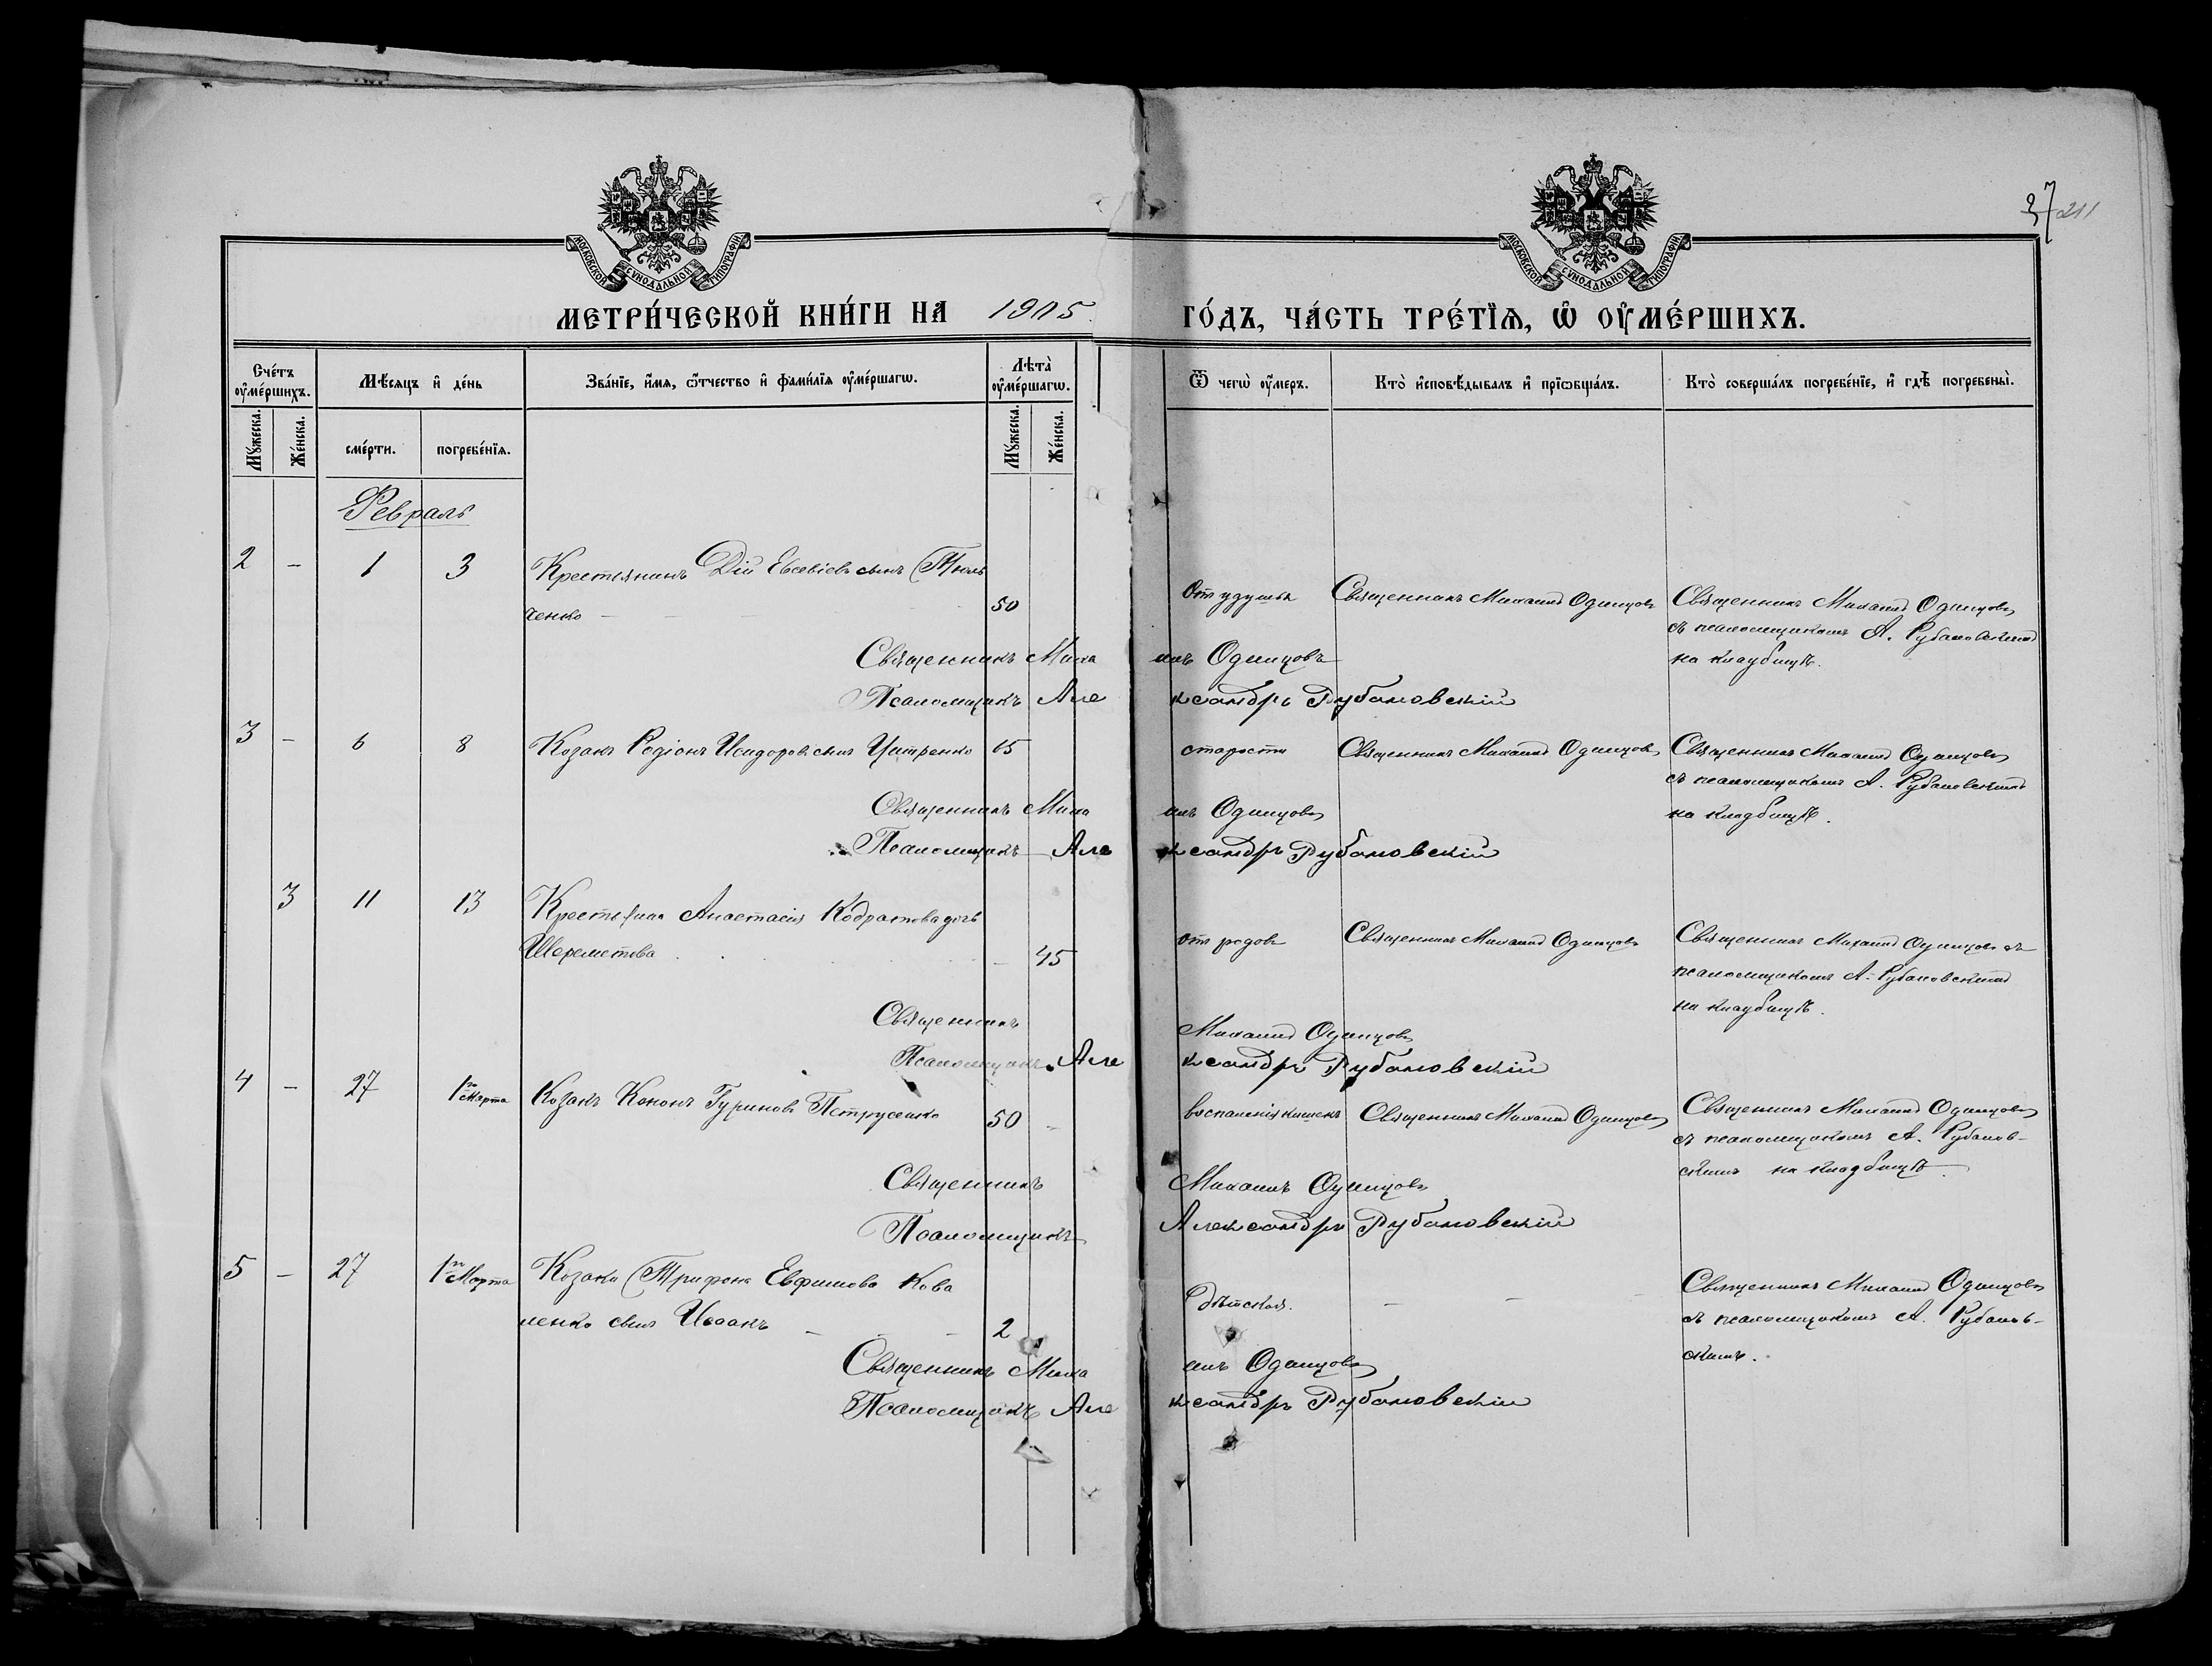 37 211
МОСКОВСКОЙ СѴНОДАЛЬНОЙ ТИПОГРАФІИ
МОСКОВСКОЙ СѴНОДАЛЬНОЙ ТИПОГРАФІИ
МЕТРИ́ЧЕСКОЙ КНИ́ГИ НА 1905 ГО́ДЪ, ЧА́СТЬ ТРЕ́ТЇѦ, Ѡ ОУМЕ́РШИХЪ.
Сче́тъ оуме́ршихъ.
Мѣ́сяцъ и де́нь
Зва́нїе, и́мя, ѻтчество и фами́лїя оуме́ршагѡ.
Лѣта̀ оуме́ршагѡ.
Ѿ чегѡ̀ оу́меръ.
Кто̀ исповѣ́дывалъ и прїѡбща́лъ.
Кто̀ соверша́лъ погребе́нїе, и гдѣ̀ погребены̀.
Мꙋ́жеска. Же́нска. сме́рти. погребе́нїя. Мꙋ́жеска. Же́нска.
Февраль
2 – 1 3 Крестьянинъ Дій Евсевіевъ сынъ Тюль
ченко – – – 50 Отъ удушья Священникъ Михаилъ Одинцовъ Священникъ Михаилъ Одинцовъ
съ псаломщикомъ А. Рубановскимъ
на кладбищѣ.
Священникъ Михаилъ Одинцовъ
Псаломщикъ Александръ Рубановскій
3 – 6 8 Козакъ Родіонъ Исидоровъ сынъ 65 старости Священникъ Михаилъ Одинцовъ Священникъ Михаилъ Одинцовъ
съ псаломщикомъ А. Рубановскимъ
на кладбищѣ.
Священникъ Михаилъ Одинцовъ
Псаломщикъ Александръ Рубановскій
3 11 13 Крестьянка Анастасія Кодратова дочь
Шереметова – 45 отъ родовъ Священникъ Михаилъ Одинцовъ Священникъ Михаилъ Одинцовъ съ
псаломщикомъ А. Рубановскимъ
на кладбищѣ.
Священникъ Михаилъ Одинцовъ
Псаломщикъ Александръ Рубановскій
4 – 27 1го Марта Козакъ Кононъ Гуриновъ Петрусенко 50 – воспаленія кишекъ Священникъ Михаилъ Одинцовъ Священникъ Михаилъ Одинцовъ
съ псаломщикомъ А. Рубанов-
скимъ на кладбищѣ.
Священникъ Михаилъ Одинцовъ
Псаломщикъ Александръ Рубановскій
5 – 27 1го Марта Козака Трифона Евфимова Кова
ленко сынъ Исаакъ – – 2 Дѣтской. – – – Священникъ Михаилъ Одинцовъ
съ псаломщикомъ А. Рубанов-
скимъ.
Священникъ Михаилъ Одинцовъ
Псаломщикъ Александръ Рубановскій